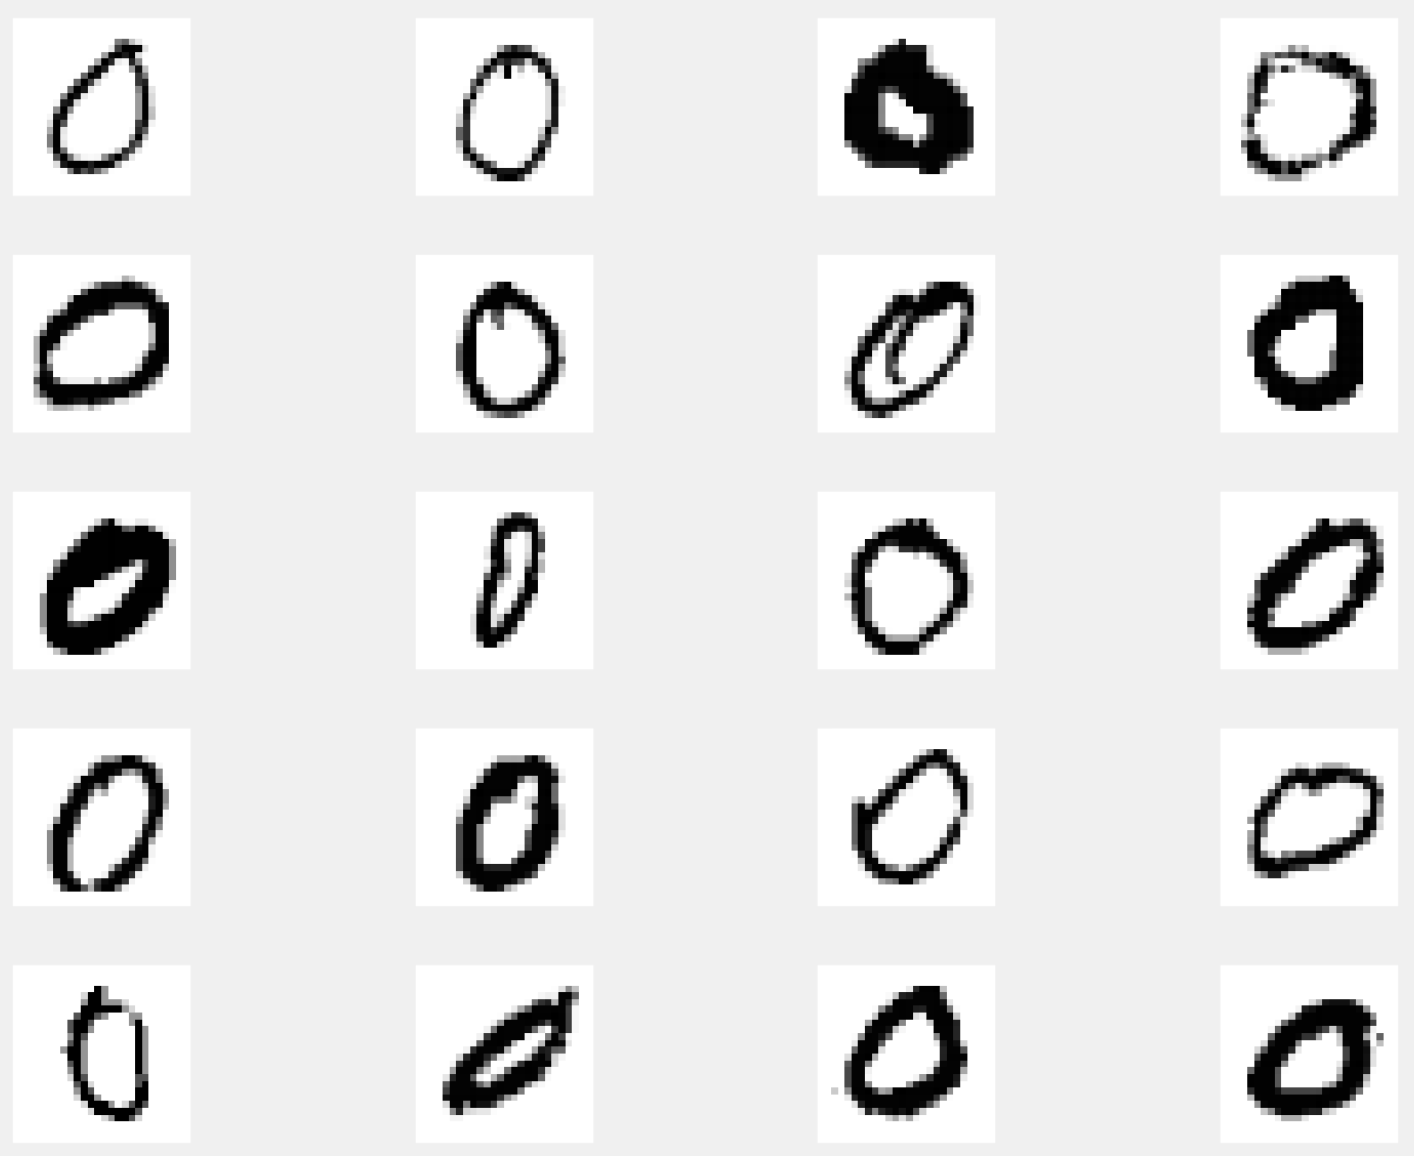 0 0 0 0
0 0 0 0
0 0 0 0
0 0 0 0
0 0 0 0